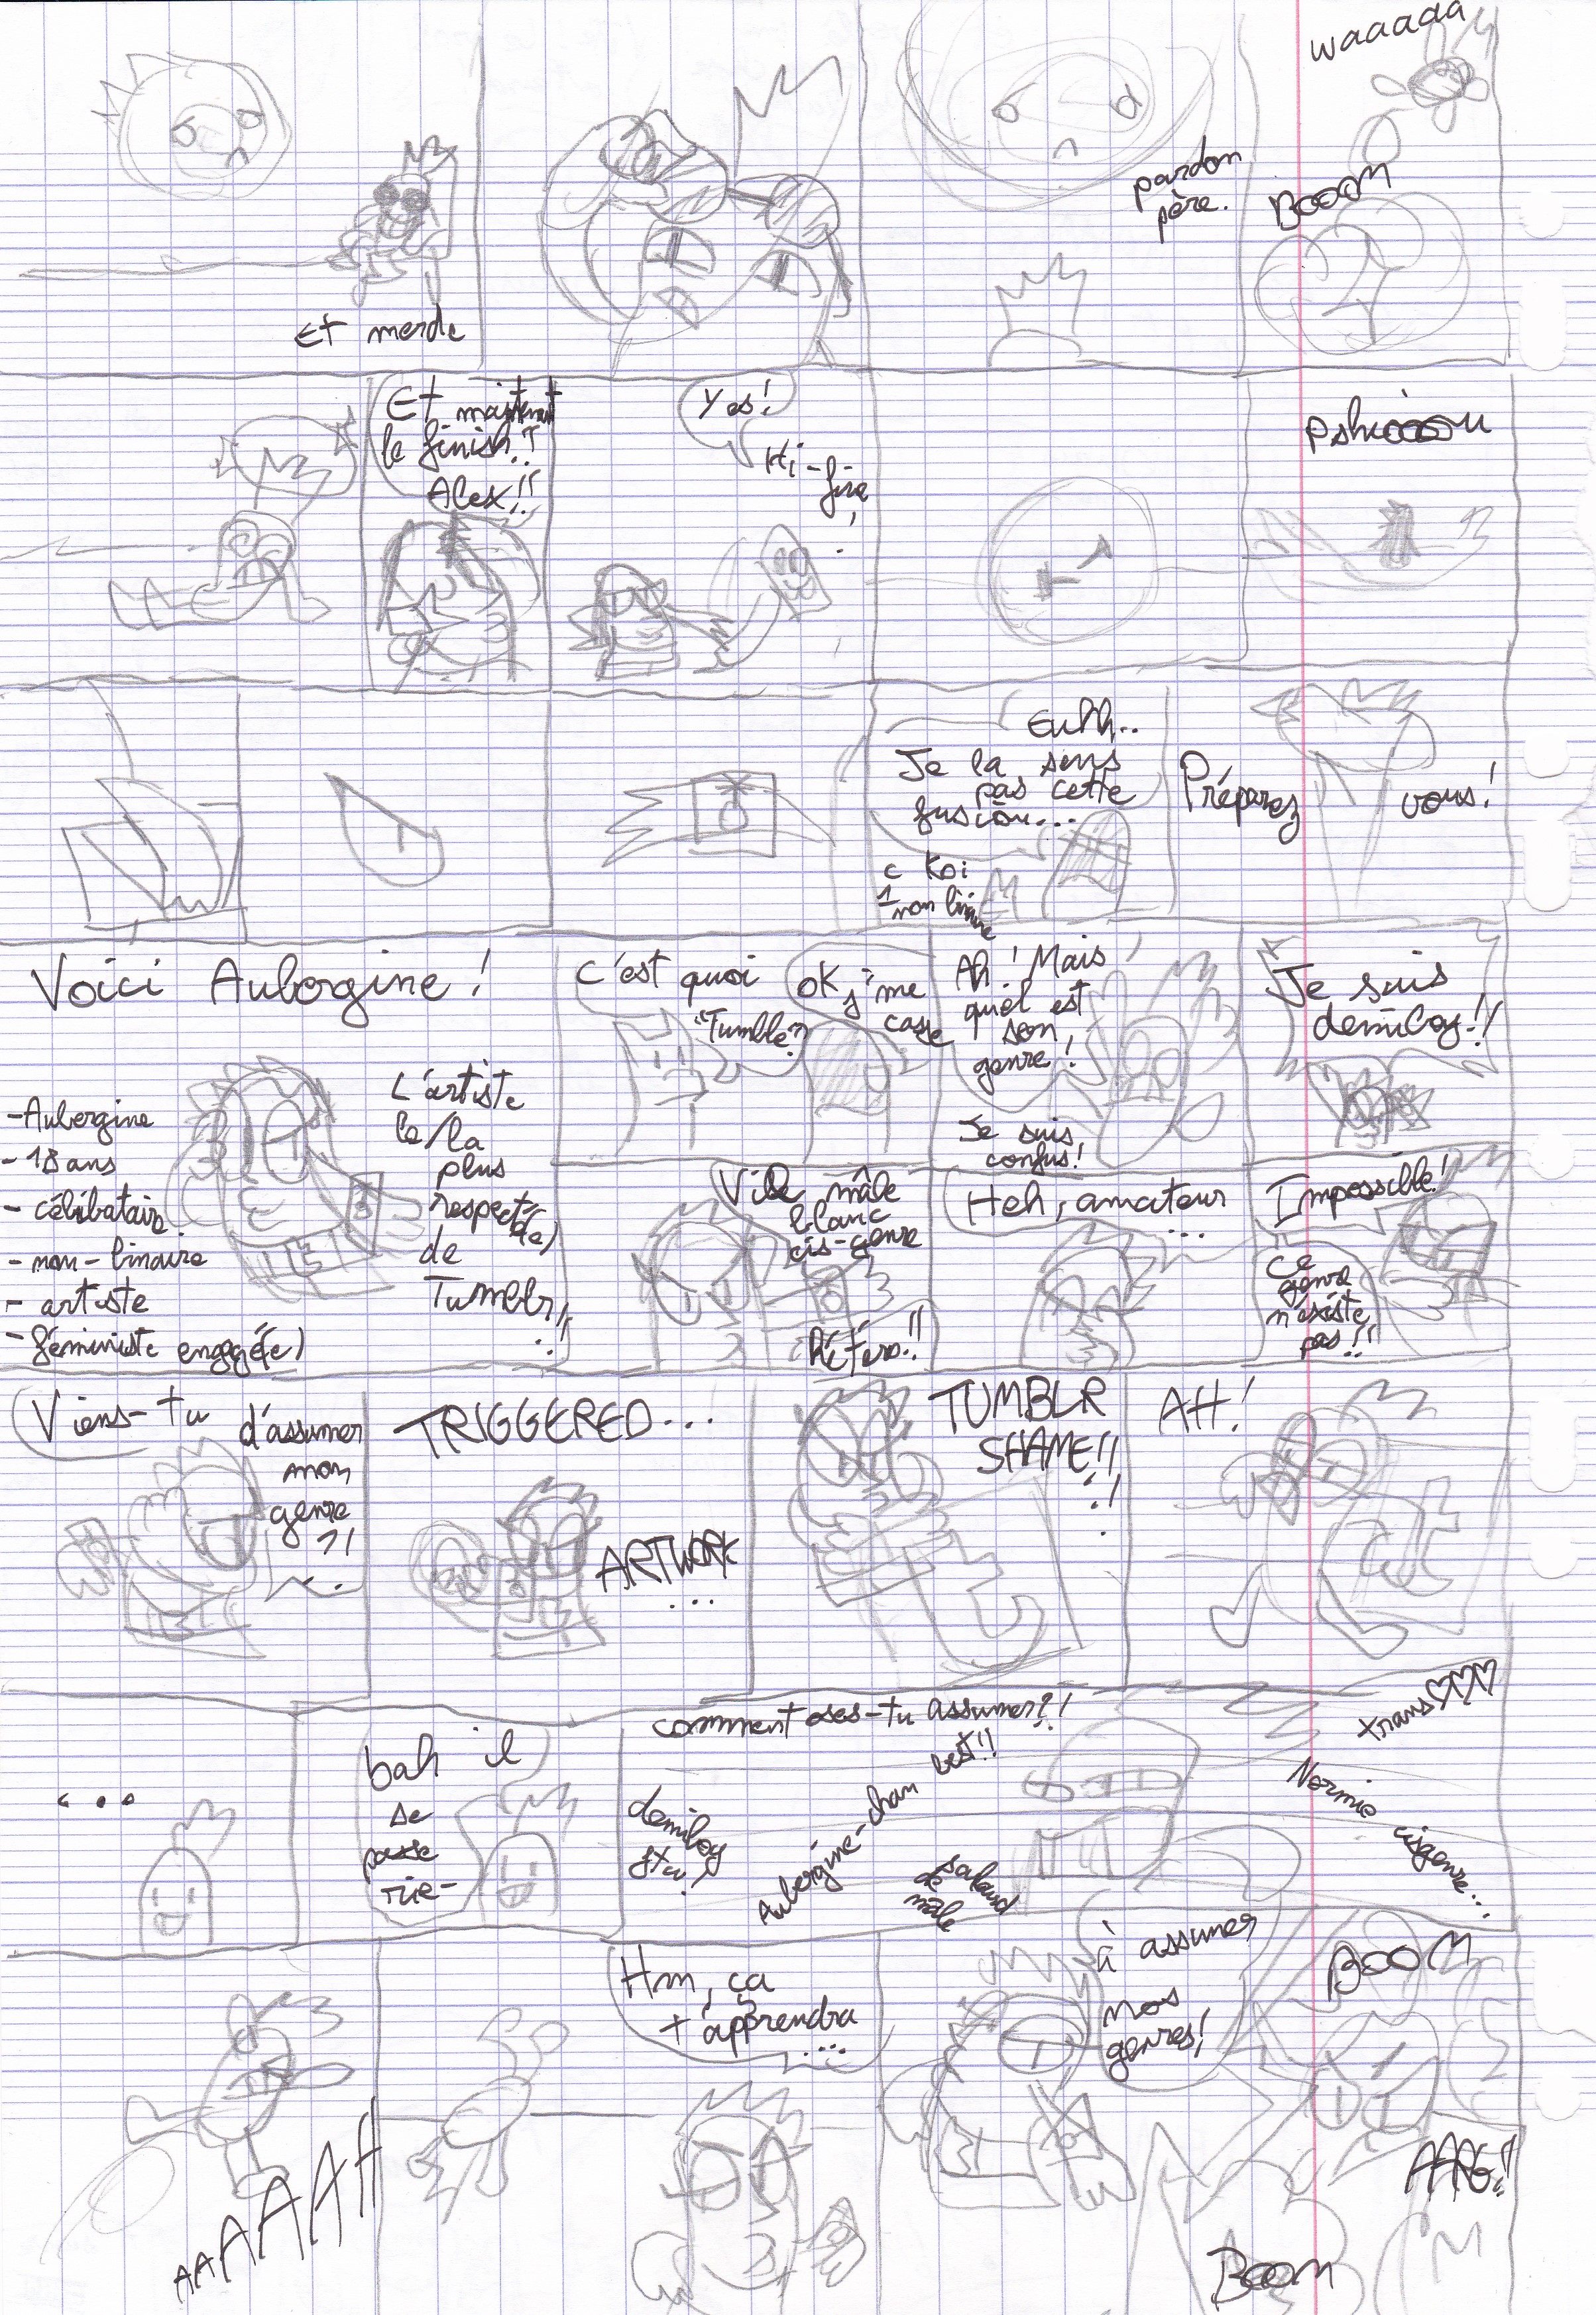 waaaaa
pardon
père.
BOOOM
Et merde
Et maintenant
le finish!!
Alex!!
Yes!
Hi-five
!
pshiooou
Euhh..
Je la sens
pas cette
fusion...
c koi
1
non binaire
Préparez
vous!
Voici Aubergine!
- Aubergine
- 18 ans
- célibataire
- non-binaire
- artiste
- féministe engagé(e)
L'artiste
le/la
plus
respecté(e)
de
Tumblr
!!
C'est quoi
"Tumble"?
ok j'me
casse
Ah! Mais
quel est
son
genre!
Je suis
confus!
Je suis
demiboy!!
Vile mâle
blanc
cis-genre
hétéro!!
Heh, amateur
...
Impossible!
Ce
genre
n'existe
pas!!
Viens-tu
d'assumer
mon
genre
?!
TRIGGERED...
ARTWORK
...
TUMBLR
SHAME!!
!!
AH!
...
bah il
se
passe
rie-
comment oses-tu assumer?!
demiboy
stu!
Aubergine-chan best!!
salaud
de
mâle
trans♡♡♡
Normie cisgenre...
AAAAAAH
Hm, ça
t'apprendra
...
à assumer
nos
genres!
BOOM
AAAG!!
BOOM